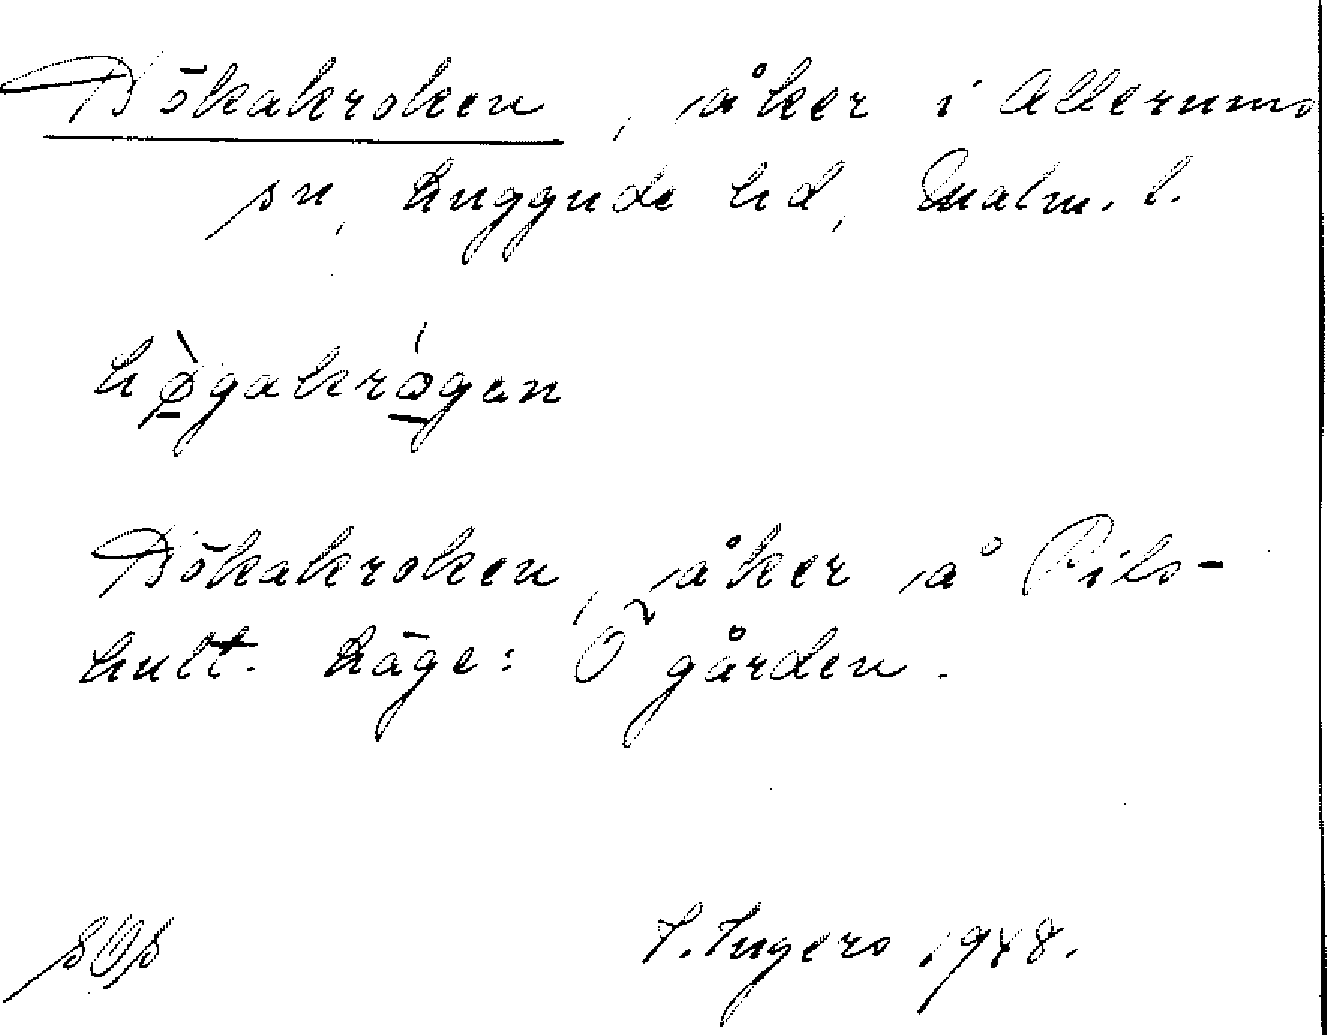 Bökakroken, åker i Allerums
sn, Luggude hd, Malm. l.
bø̀gakrǫ́gen
Bökakroken, åker å Pils-
hult. Läge: Ö gården.
SOS I. Ingers 1948.